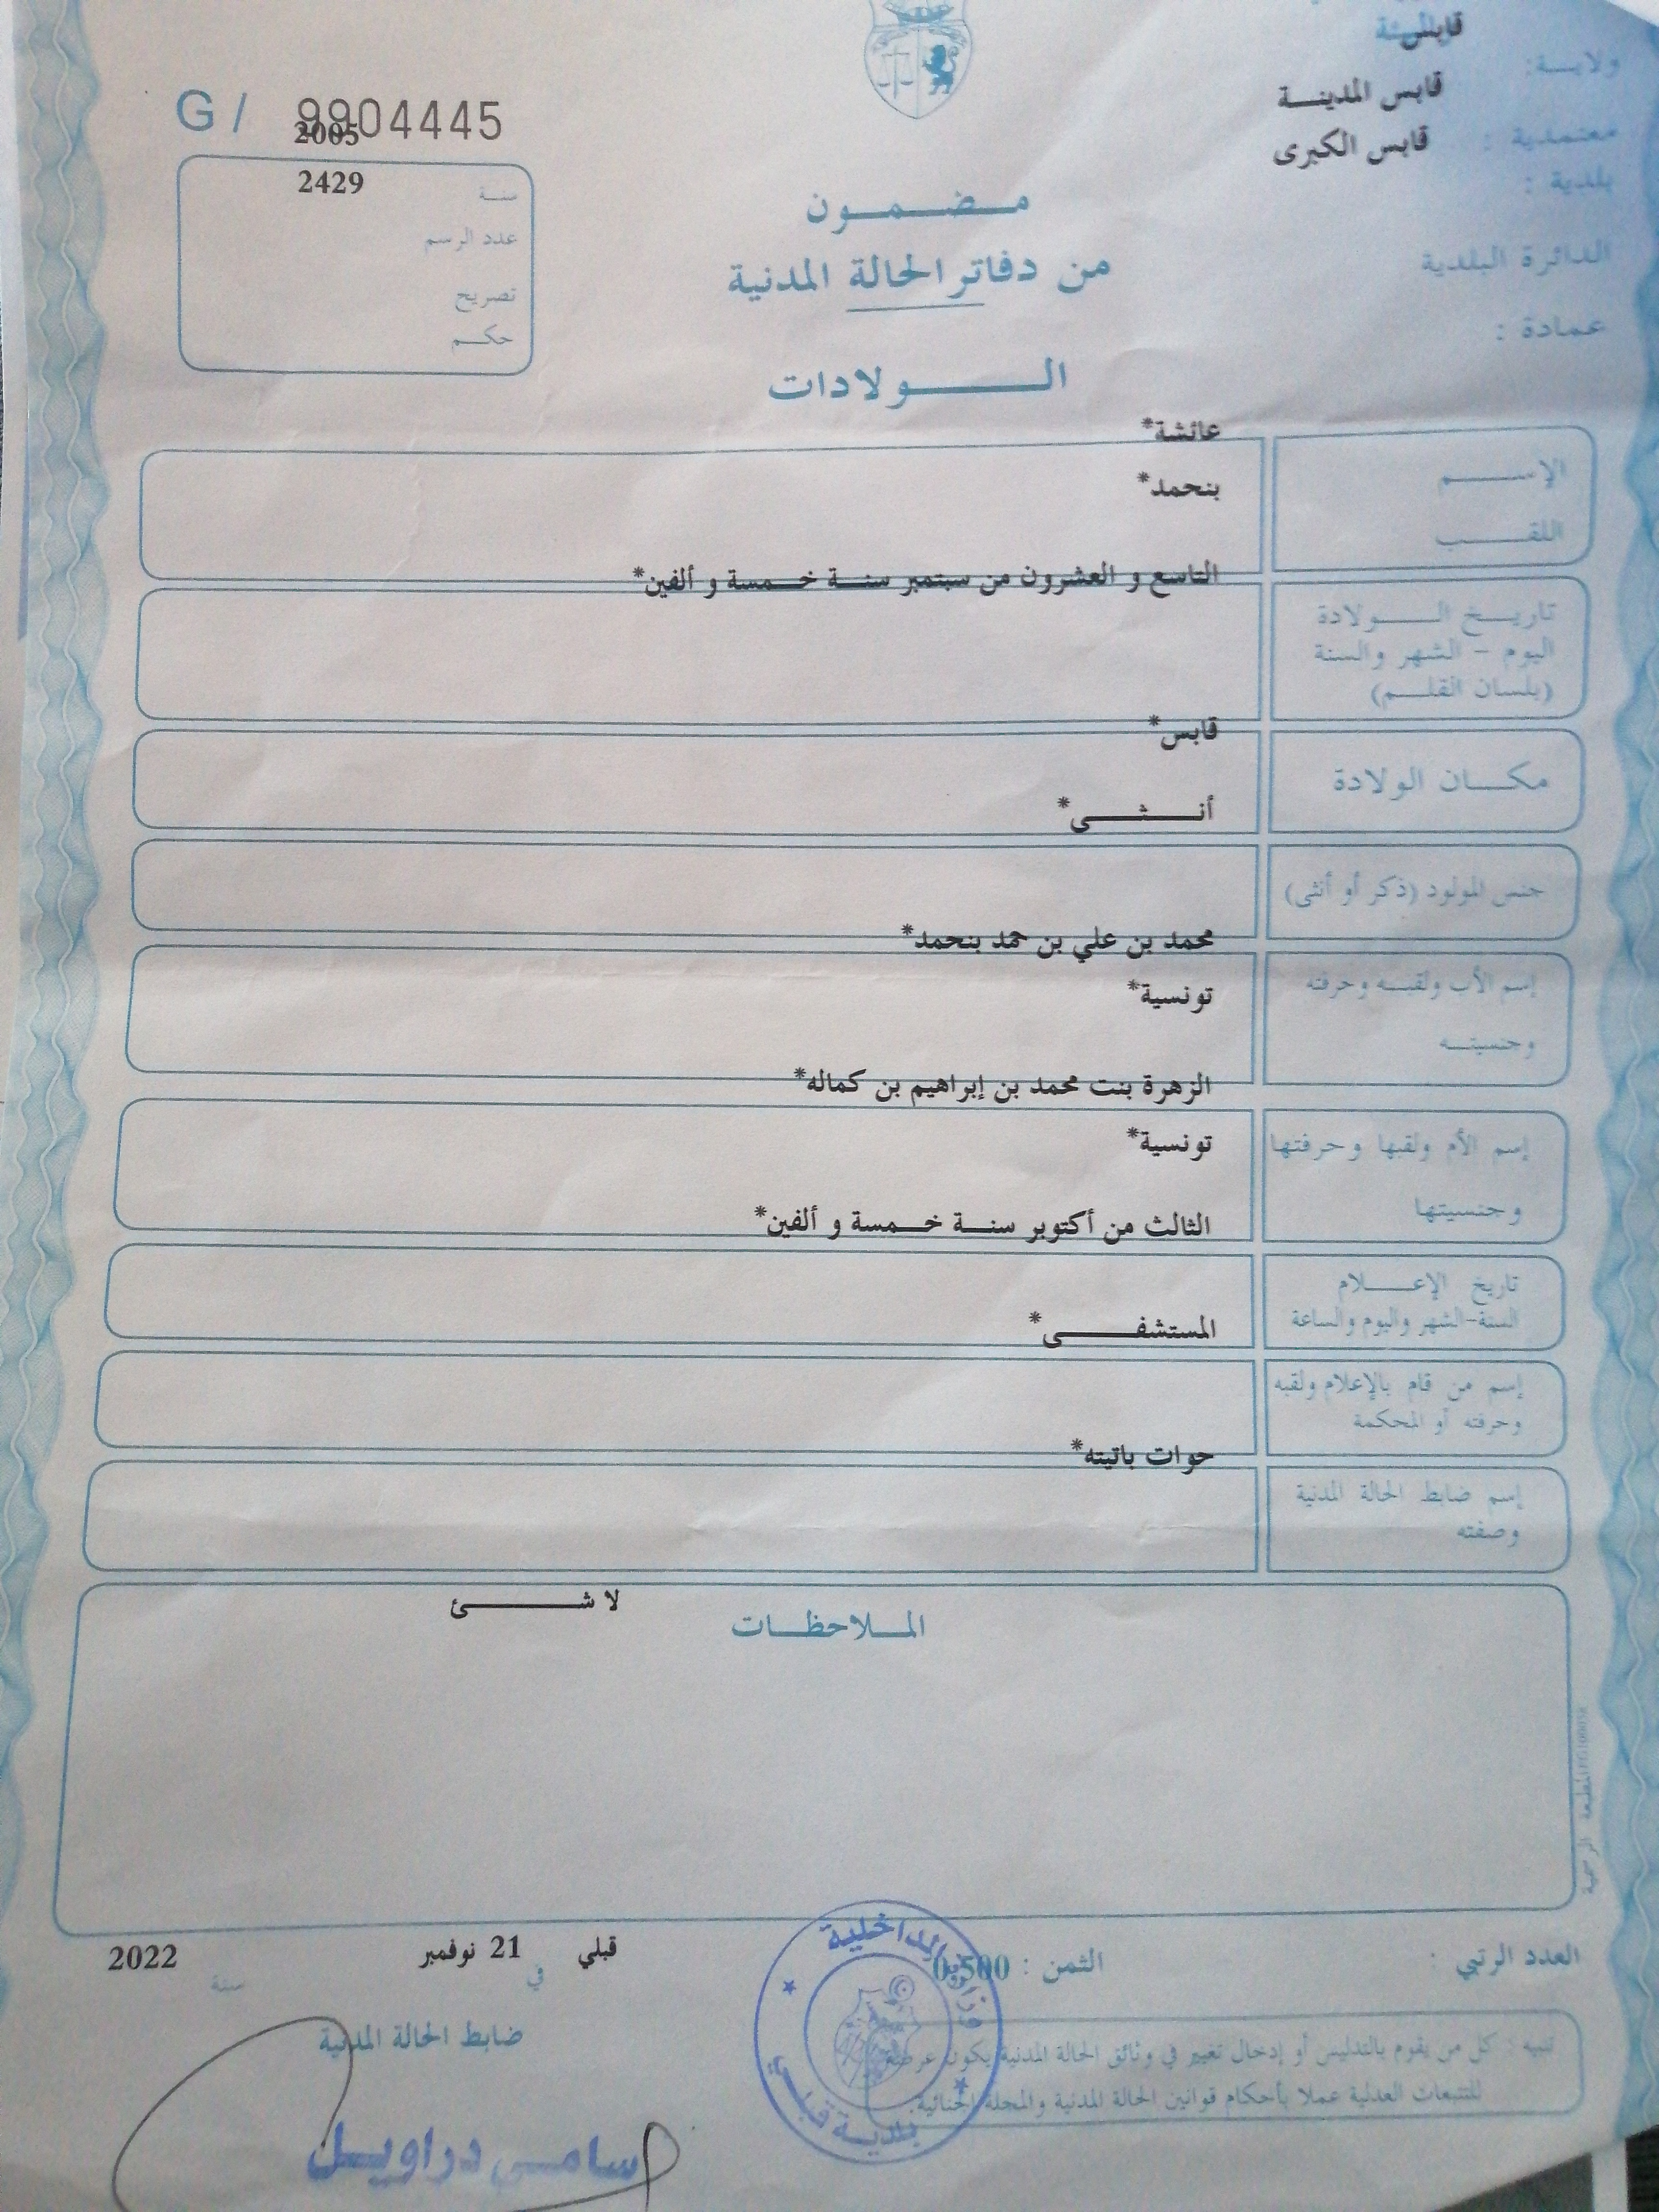 قابس
ولايــة:
قابس المدينــة
معتمدية :
قابس الكبرى
بلدية :
الدائرة البلدية
عمادة :
G / 9904445
2005
سنـة
2429
عدد الرسم
تصريح
حكــم
مــضــمــون
من دفاتر الحالة المدنية
الــــولادات
عائشة*
الإســــم
بنحمد*
اللقــــب
التاسع و العشرون من سبتمبر سنــة خــمسة و ألفين*
تاريــخ الــــولادة
اليوم - الشهر والسنة
(بلسان القلــم)
قابس*
مكــان الولادة
أنــــثــــى*
جنس المولود (ذكر أو أنثى)
محمد بن علي بن حمد بنحمد*
إسم الأب ولقبــه وحرفته
تونسية*
وجنسيتــه
الزهرة بنت محمد بن إبراهيم بن كماله*
إسم الأم ولقبها وحرفتها
تونسية*
وجنسيتها
الثالث من أكتوبر سنــة خــمسة و ألفين*
تاريخ الإعــــلام
السنة-الشهر واليوم والساعة
المستشفــــى*
إسم من قام بالإعلام ولقبه
وحرفته أو المحكمة
حوات باتيته*
إسم ضابط الحالة المدنية
وصفته
لا شــــئ
المــلاحظــات
المطبعة الرسمية
العدد الرتبي :
الثمن : 0,500
قبلي في 21 نوفمبر سنة 2022
ضابط الحالة المدنية
تنبيه : كل من يقوم بالتدليس أو إدخال تغيير في وثائق الحالة المدنية يكون عرضة
للتتبعات العدلية عملا بأحكام قوانين الحالة المدنية والمجلة الجنائية.
وزارة الداخلية
بلديــة قبلــي
سامــي دراويــل